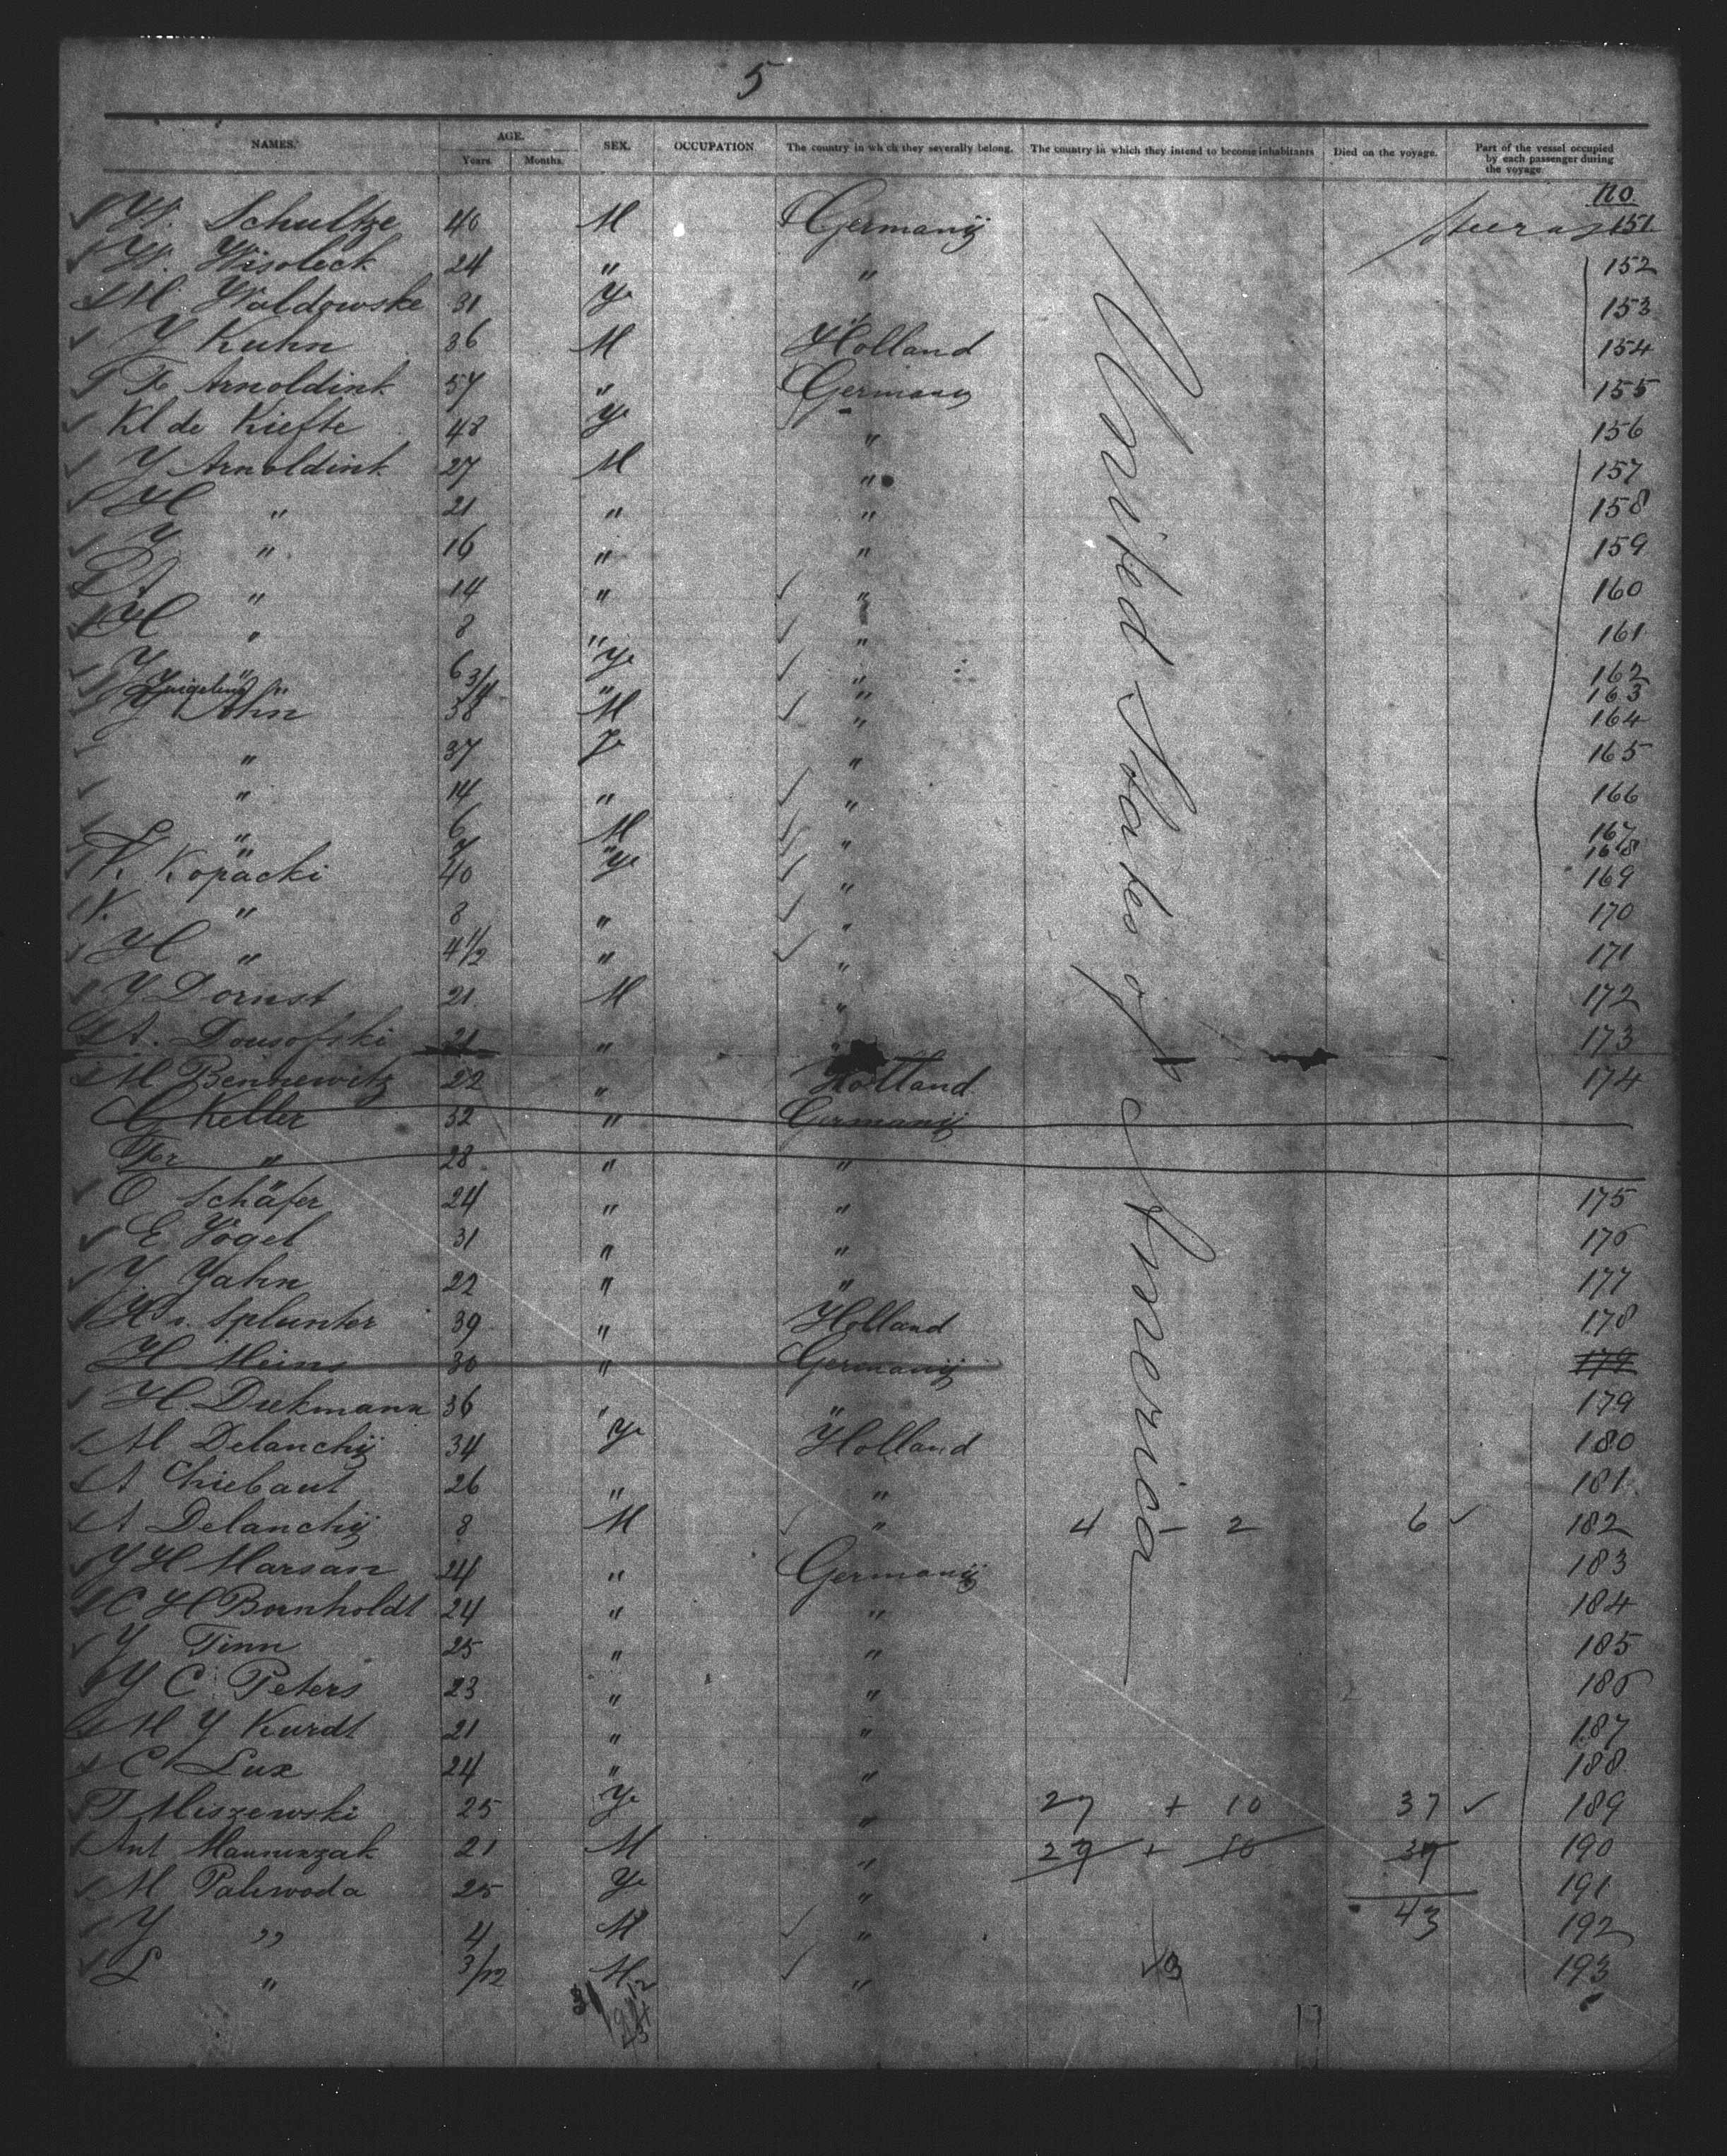 5
NAMES. AGE. SEX. OCCUPATION The country in which they severally belong. The country in which they intend to become inhabitants Died on the voyage. Part of the vessel occupied by each passenger during the voyage
Years Months.
no.
W. Schultze 40 M Germanÿ 151
W. Wisoleck 24 " " 152
M. Waldowske 31 Ye " 153
Y Kuhn 36 M Holland 154
Fr Arnoldink 57 " Germany 155
Kl de Kiefte 48 Ye " 156
Y Arnoldink 27 M " 157
H " 21 " " 158
Y " 16 " " 159
A " 14 " " 160
H " 8 " " 161
Y " 6 Ye " 162
Zuigeling " 3/4 " " 163
Y 38 M " 164
" 37 Ye " 165
" 14 " " 166
" 6 M " 167
" Ye " 168
K Kopacki 40 " 169
V. " 8 " " 170
H " 4 1/2 " " 171
Y Dornst 21 M " 172
A. Dousofski 21 " " 173
M Bennewitz 22 " Holland 174
C Keller 32 " Germanÿ
Fr " 28 " "
O Schäfer 24 " " 175
E Vogel 31 " " 176
Y. Yahn 22 " " 177
H v. Splunter 39 " Holland 178
H Meins 30 " Germanÿ 179
H Diekmann 36 " " 179
M Delanchÿ 34 Ye Holland 180
A Thiebaut 26 " " 181
A Delanchÿ 8 M " 4 - 2 6 182
Y H Marsan 24 " Germanÿ 183
C H Bornholdt 24 " " 184
Y Tinn 25 " " 185
Y C. Peters 23 " " 186
M Y Kurdt 21 " " 187
C Lux 24 " " 188
T Miszewski 25 Ye " 27 + 10 37 189
Ant 21 M " 29 + 10 39 190
M Paliwoda 25 Ye " 191
Y " 4 M " 43 192
L " 3/12 M " 193
United States of America